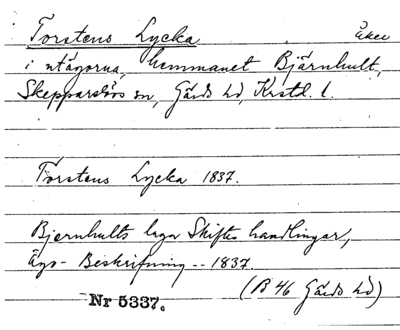 Torstens Lycka Åker
i utägorna, hemmanet Bjärnhult,
Skepparslövs sn, Gärds hd, Krstd. l.
Torstens Lycka 1837.
Bjernhults laga Skiftes handlingar,
Äго- Beskrifning -- 1837.
(B 46 Gärds hd)
Nr 5337.